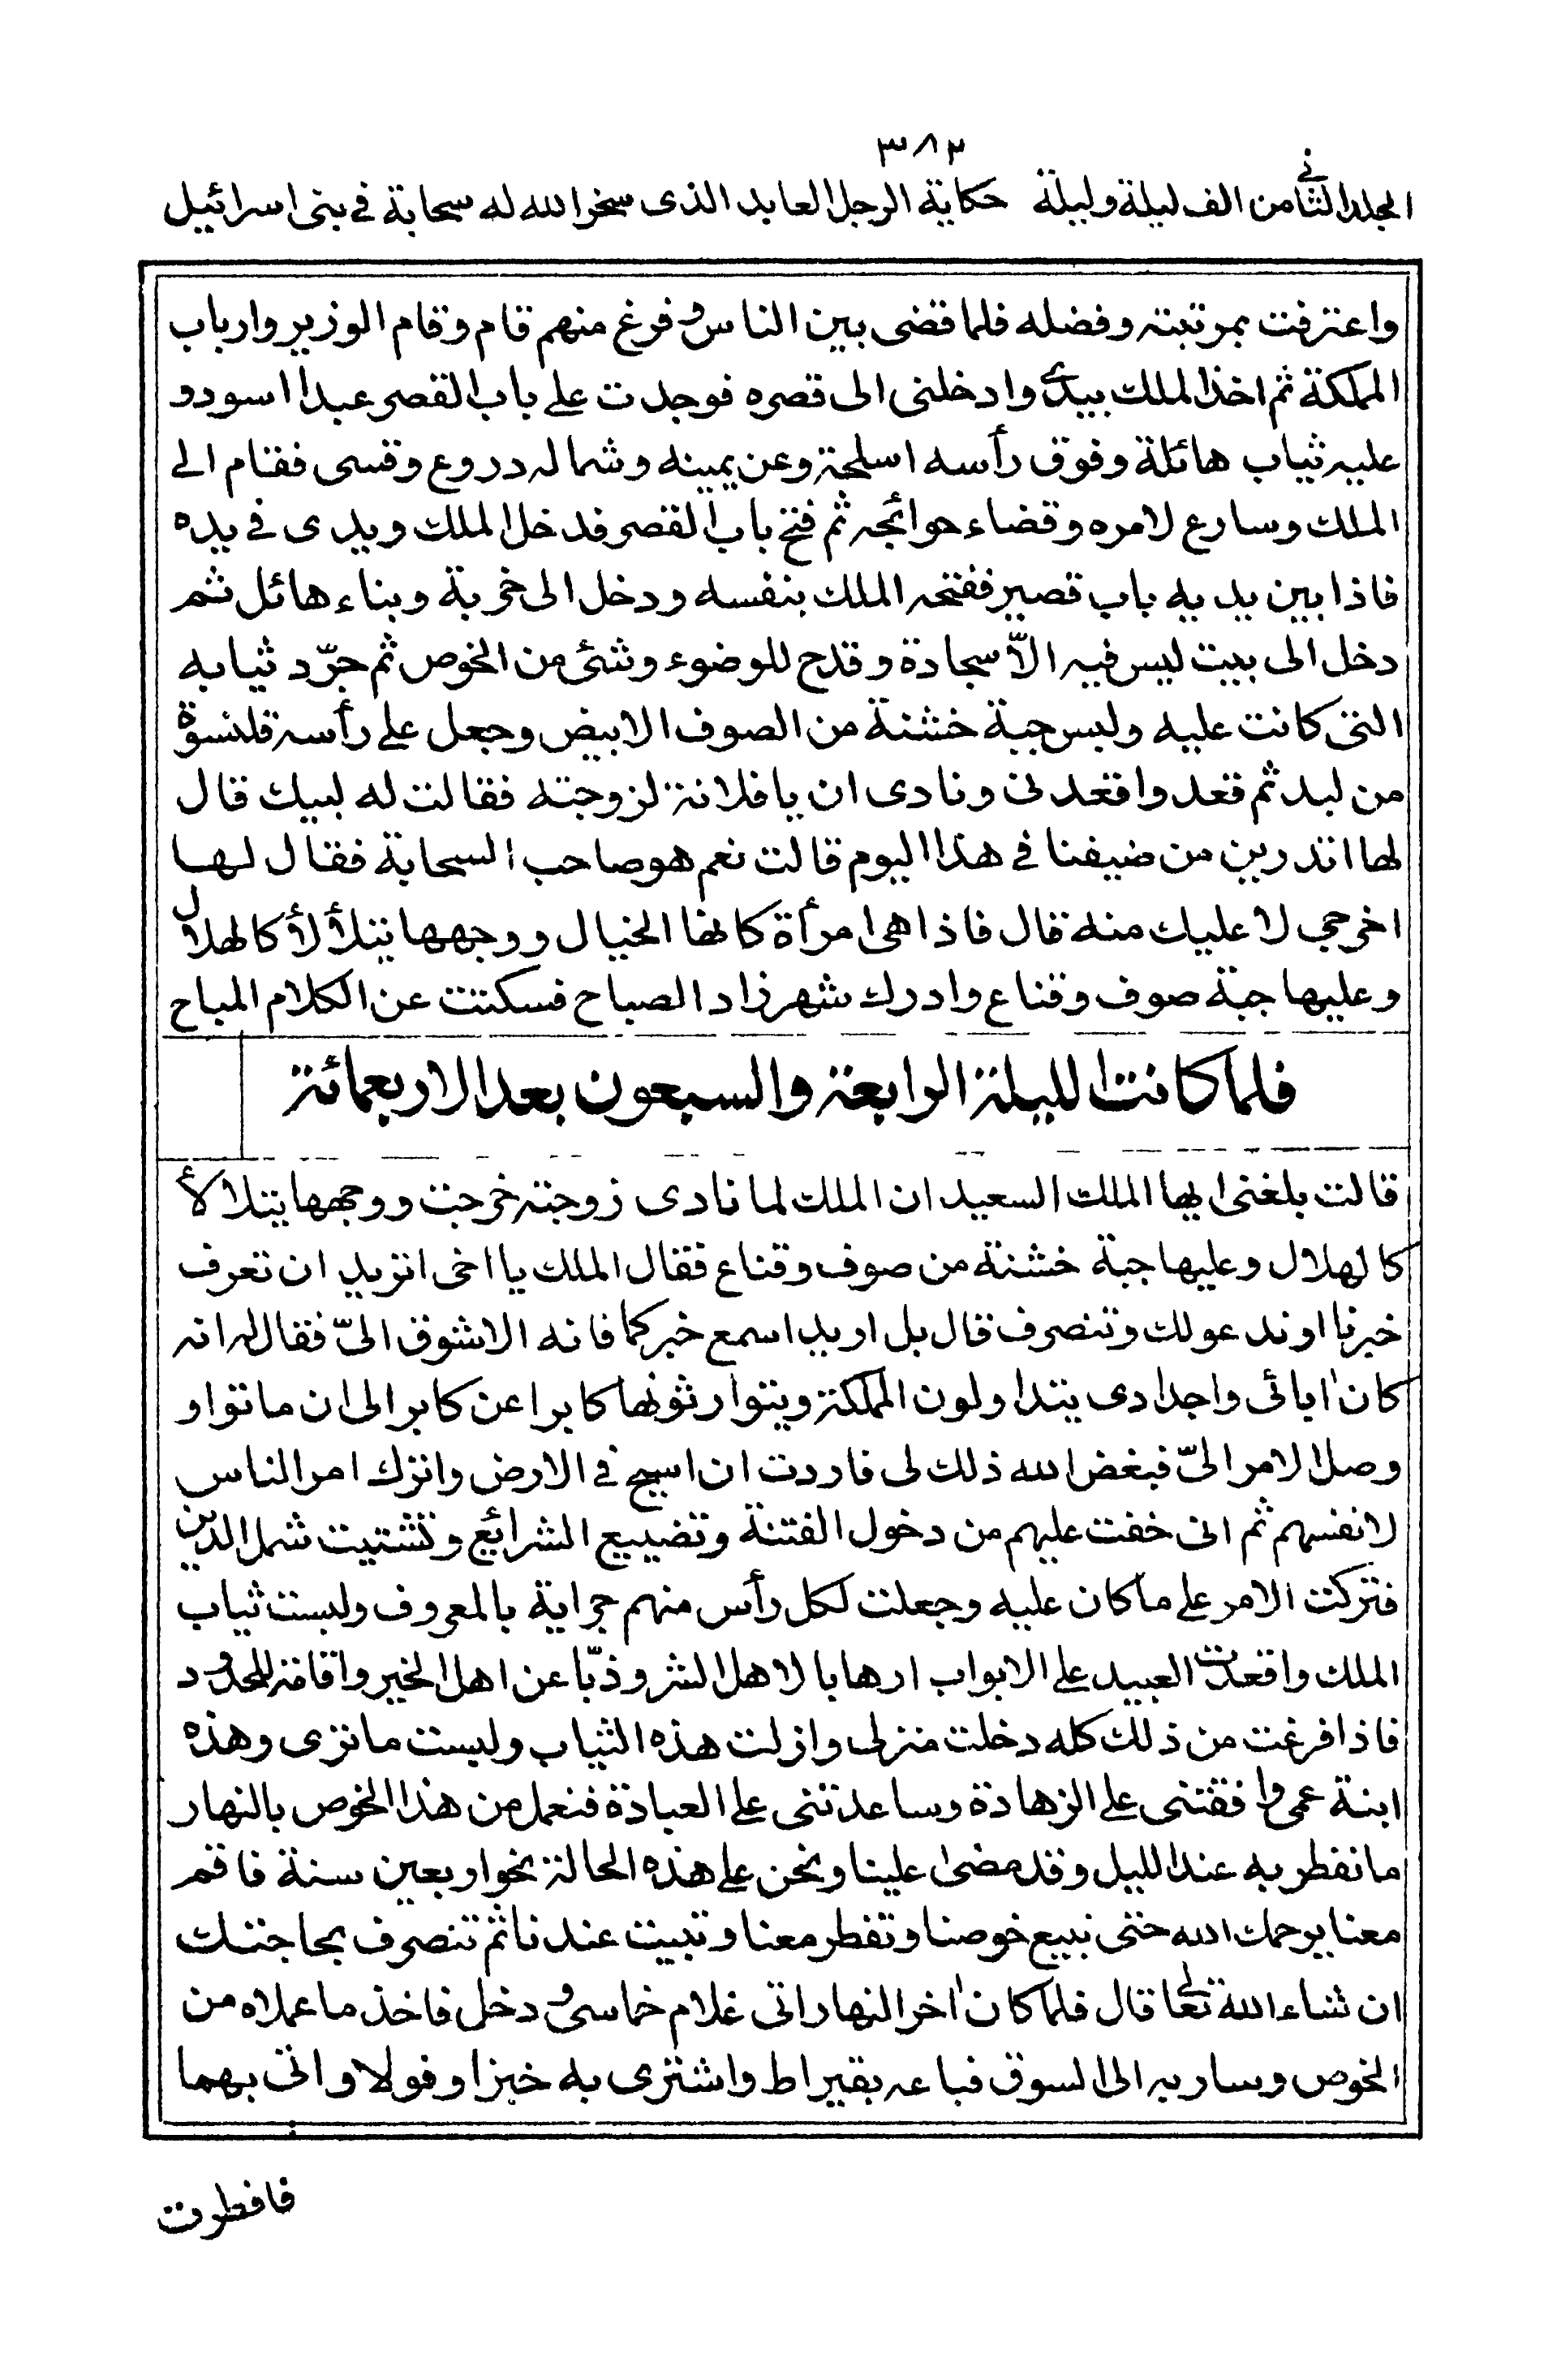 ٣٨٢
المجلد الثاني من الف ليلة وليلة حكاية الرجل العابد الذى سخر الله له سحابة فى بنى اسرائيل
واعترفت بمرتبته وفضله فلما قضى بين الناس وفرغ منهم قام وقام الوزير وارباب
المملكة ثم اخذ الملك بيدى وادخلنى الى قصره فوجدت على باب القصر عبدا اسود و
عليه ثياب هائلة وفوق رأسه اسلحة وعن يمينه وشماله دروع وقسى فقام الى
الملك وسارع لامره وقضاء حوائجه ثم فتح باب القصر فدخل الملك ويدى فى يده
فاذا بين يديه باب قصير ففتحه الملك بنفسه ودخل الى خربة وبناء هائل ثم
دخل الى بيت ليس فيه الّا سجادة وقدح للوضوء وشئ من الخوص ثم جرّد ثيابه
التى كانت عليه ولبس جبة خشنة من الصوف الابيض وجعل على رأسه قلنسوة
من لبد ثم قعد واقعدنى ونادى ان يا فلانة لزوجته فقالت له لبيك قال
لها اتدرين من ضيفنا فى هذا اليوم قالت نعم هو صاحب السحابة فقال لها
اخرجى لا عليك منه قال فاذا هى امرأة كانها الخيال ووجهها يتلألأ كالهلال
وعليها جبة صوف وقناع وادرك شهرزاد الصباح فسكتت عن الكلام المباح
فلما كانت الليلة الرابعة والسبعون بعد الاربعمائة
قالت بلغنى ايها الملك السعيد ان الملك لما نادى زوجته خرجت ووجهها يتلالأ
كالهلال وعليها جبة خشنة من صوف وقناع فقال الملك يا اخى اتريد ان تعرف
خبرنا او ندعو لك وتنصرف قال بل اريد اسمع خبركما فانه الاشوق الىّ فقال له انه
كان اٰبائى واجدادى يتداولون المملكة ويتوارثونها كابرا عن كابر الى ان ماتوا و
وصل الامر الىّ فبغض الله ذلك لى فاردت ان اسيح فى الارض واترك امر الناس
لانفسهم ثم انى خفت عليهم من دخول الفتنة وتضييع الشرائع وتشتيت شمل الدين
فتركت الامر على ما كان عليه وجعلت لكل رأس منهم جراية بالمعروف ولبست ثياب
الملك واقعدت العبيد على الابواب ارهابا لاهل الشر وذبّا عن اهل الخير واقامة للحدود
فاذا فرغت من ذلك كله دخلت منزلى وازلت هذه الثياب ولبست ما ترى وهذه
ابنة عمى وافقتنى على الزهادة وساعدتنى على العبادة فنعمل من هذا الخوص بالنهار
ما نفطر به عند الليل وقد مضىٰ علينا ونحن على هذه الحالة نحوا ربعين سنة فاقم
معنا يرحمك الله حتى نبيع خوصنا وتفطر معنا وتبيت عندنا ثم تنصرف بحاجتك
ان شاء الله تعالى قال فلما كان اٰخر النهار اتى غلام خماسى ودخل فاخذ ما عملاه من
الخوص وسار به الى السوق فباعه بقيراط واشترى به خبزا وفولا واتى بهما
فافطرت